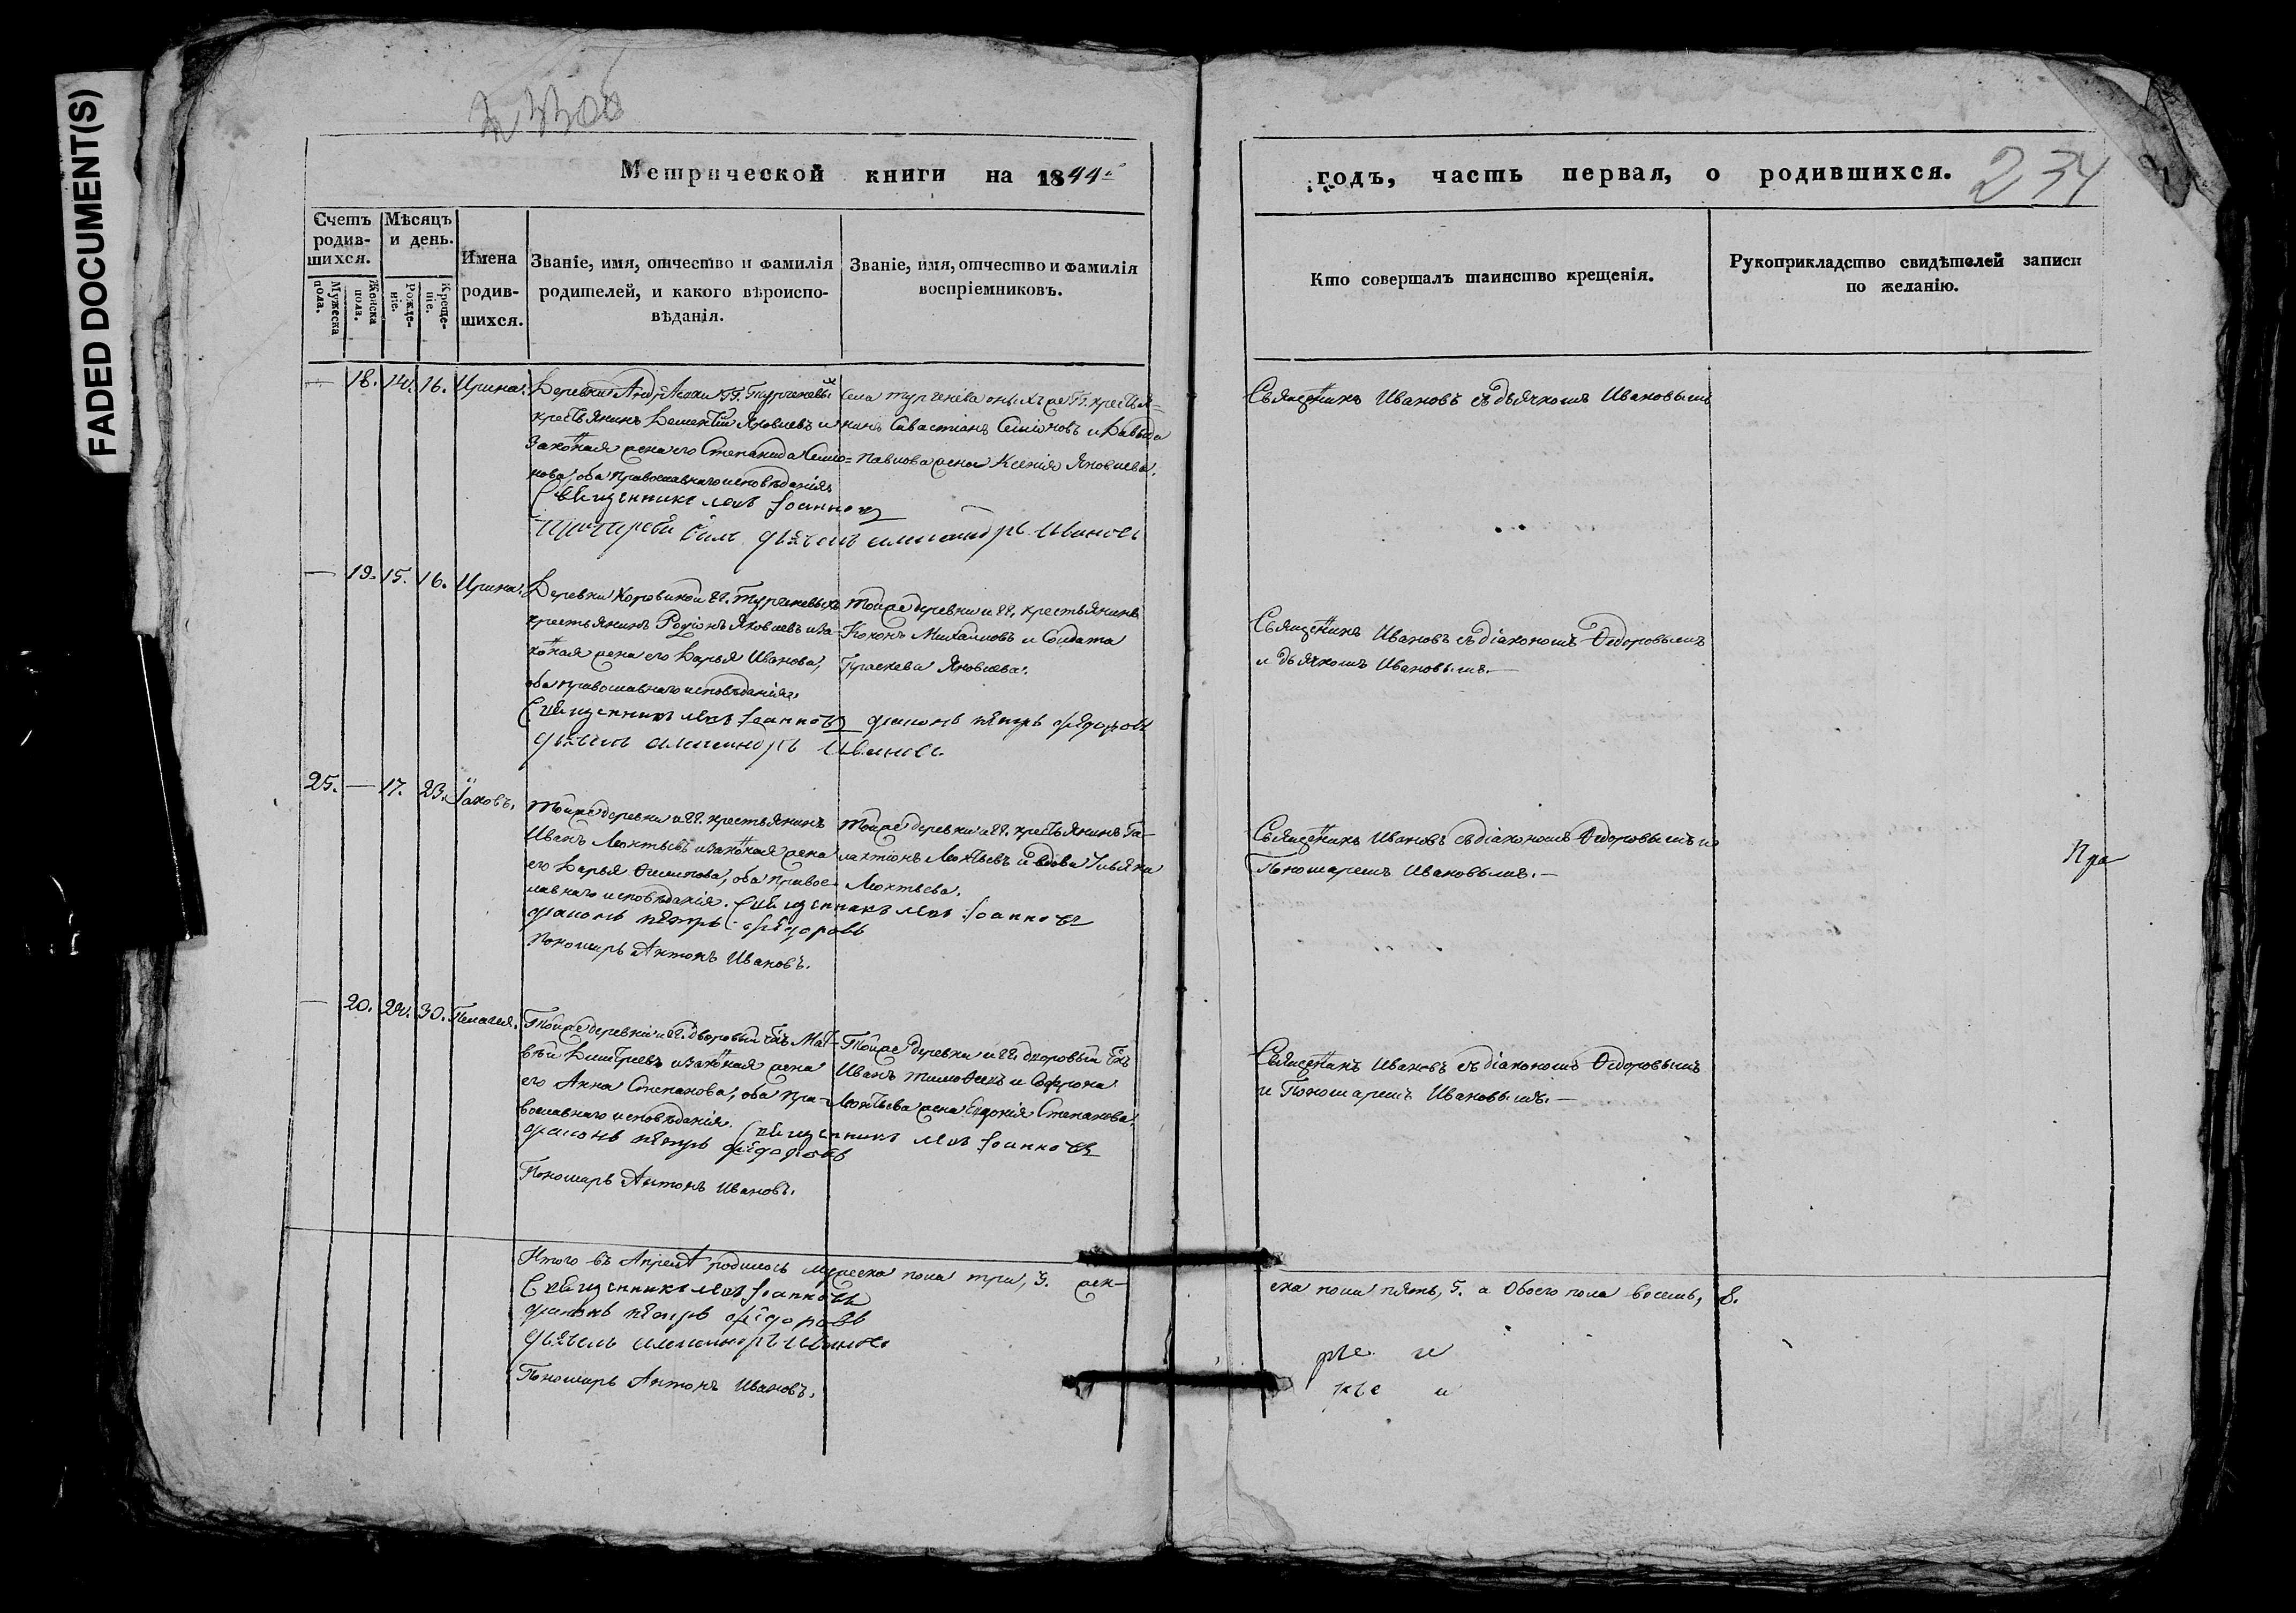 FADED DOCUMENT(S)
Метрической книги на 1844й
годъ, часть первая, о родившихся.
234
Счетъ родив-шихся.
Мѣсяцъ и день.
Мужеска пола.
Женска пола.
Рожде-ніе.
Креще-ніе.
Имена
родив-
шихся.
Званіе, имя, отчество и фамилія
родителей, и какого вѣроиспо-
вѣданія.
Званіе, имя, отчество и фамилія
воспріемниковъ.
Кто совершалъ таинство крещенія.
Рукоприкладство свидѣтелей записи
по желанію.
— 18. 14. 16. Ирина.
Деревни ГГ. Тургеневыхъ
крестьянинъ Дементій Яковлевъ и
законная жена его Степанида Семіо-
нова, оба православнаго исповѣданія
Священникъ Левъ Іоанновъ
дьячекъ александръ Ивановъ
Села тургенева оныхъ же ГГ. крестья-
нинъ Савастіанъ Семіоновъ и Давыда
Павлова жена Ксенія Яковлева.
Священникъ Ивановъ съ дьячкомъ Ивановымъ
— 19. 15. 16. Ирина.
Деревни Коровиной ГГ. Тургеневыхъ
крестьянинъ Родіонъ Яковлевъ и за-
конная жена его Дарья Иванова,
оба православнаго исповѣданія.
Священникъ Левъ Іоанновъ диаконъ петръ фёдоровъ
дьячекъ александръ Ивановъ
Тойже деревни и ГГ. крестьянинъ
Конон Михайловъ и Солдата
Праскева Яковлева.
Священникъ Ивановъ съ діакономъ Ѳедоровымъ
и дьячкомъ Ивановымъ.—
25. — 17. 23. Іаковъ.
Тойже деревни и ГГ. крестьянинъ
Иванъ Леонтьевъ и законная жена
его Дарья Филипова, оба правос-
лавнаго исповѣданія. Священникъ Левъ Іоанновъ
диаконъ петръ фёдоровъ
Пономарь Антонъ Ивановъ.
Тойже деревни и ГГ. крестьянинъ Га-
лактіонъ Леонтьевъ и вдова Ульяна
Леонтьева.
Священникъ Ивановъ съ діакономъ Ѳедоровымъ и
Пономаремъ Ивановымъ.—
Пра
— 20. 24. 30. Пелагея.
Тойже деревни и ГГ. дворовый чкъ Мат-
вѣй Димитріевъ и законная жена
его Анна Степанова, оба пра-
вославнаго исповѣданія. Священникъ Левъ Іоанновъ
диаконъ петръ фёдоровъ
Пономарь Антонъ Ивановъ.
Тойже деревни и ГГ. дворовый чкъ
Иванъ Тимоѳеевъ и Софрона
Леонтьева жена Евдокія Степанова.
Священникъ Ивановъ съ діакономъ Ѳедоровымъ
и Пономаремъ Ивановымъ.—
Итого въ Апрелѣ родилось мужеска пола три, 3. жен-
ска пола пять, 5. а обоего пола восемь, 8.
Священникъ Левъ Іоанновъ
диаконъ петръ фёдоровъ
дьячекъ александръ Ивановъ
Пономарь Антонъ Ивановъ.